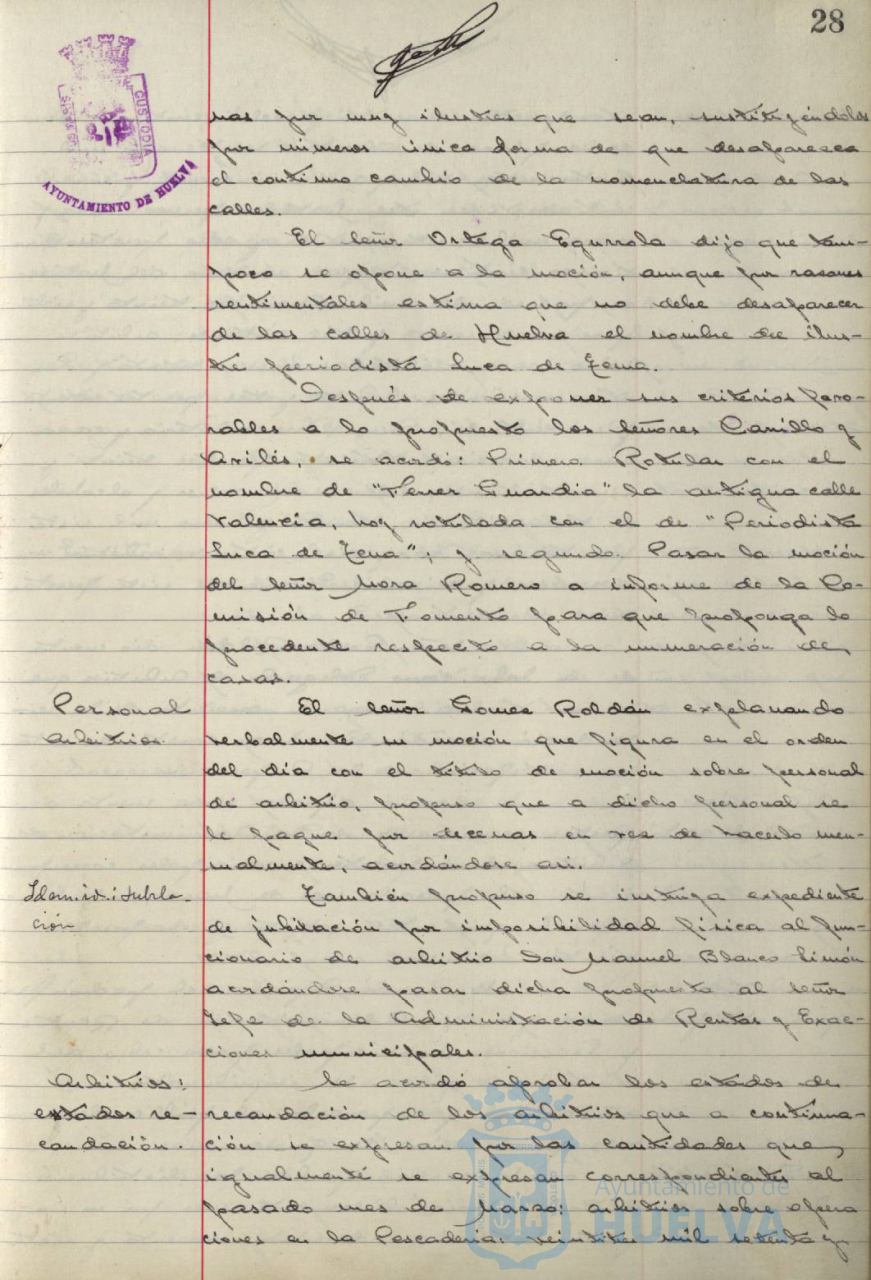 28
CUSTODIA
AYUNTAMIENTO DE HUELVA
nas por muy ilustres que sean, sustituyéndolos
por números única forma de que desaparezca
el continuo cambio de la nomenclatura de las
calles.
El señor Ortega Egurrola dijo que tam-
poco se opone a la moción, aunque por razones
sentimentales estima que no debe desaparecer
de las calles de Huelva el nombre del ilus-
tre periodista Luca de Tena.
Después de exponer sus criterios favo-
rables a lo propuesto los señores Carrillo y
Avilés, se acordó: Primero. Rotular con el
nombre de "Ferrer Guardia" la antigua calle
Valencia, hoy rotulada con el de "Periodista
Luca de Tena"; y segundo. Pasar la moción
del señor Mora Romero a informe de la Co-
misión de Fomento para que proponga lo
procedente respecto a la numeración de
casas.
Personal
Arbitrios.
El señor Gomez Roldán explanando
verbalmente su moción que figura en el orden
del día con el título de moción sobre personal
de arbitrio, propuso que a dicho personal se
le pague por decenas en vez de hacerlo men-
sualmente, acordándose así.
Idem. id.: Jubila-
ción
También propuso se instruya expediente
de jubilación por imposibilidad física al fun-
cionario de arbitrio Don Manuel Blanco Limón
acordándose pasar dicha propuesta al señor
Jefe de la Administración de Rentas y Exac-
ciones municipales.
Arbitrios:
estados re-
caudación.
Se acordó aprobar los estados de
recaudación de los arbitrios que a continua-
ción se expresan por las cantidades que,
igualmente se expresan correspondientes al
pasado mes de Marzo: arbitrios sobre opera
ciones en la Pescadería: veintitres mil setenta y
Ayuntamiento de
HUELVA